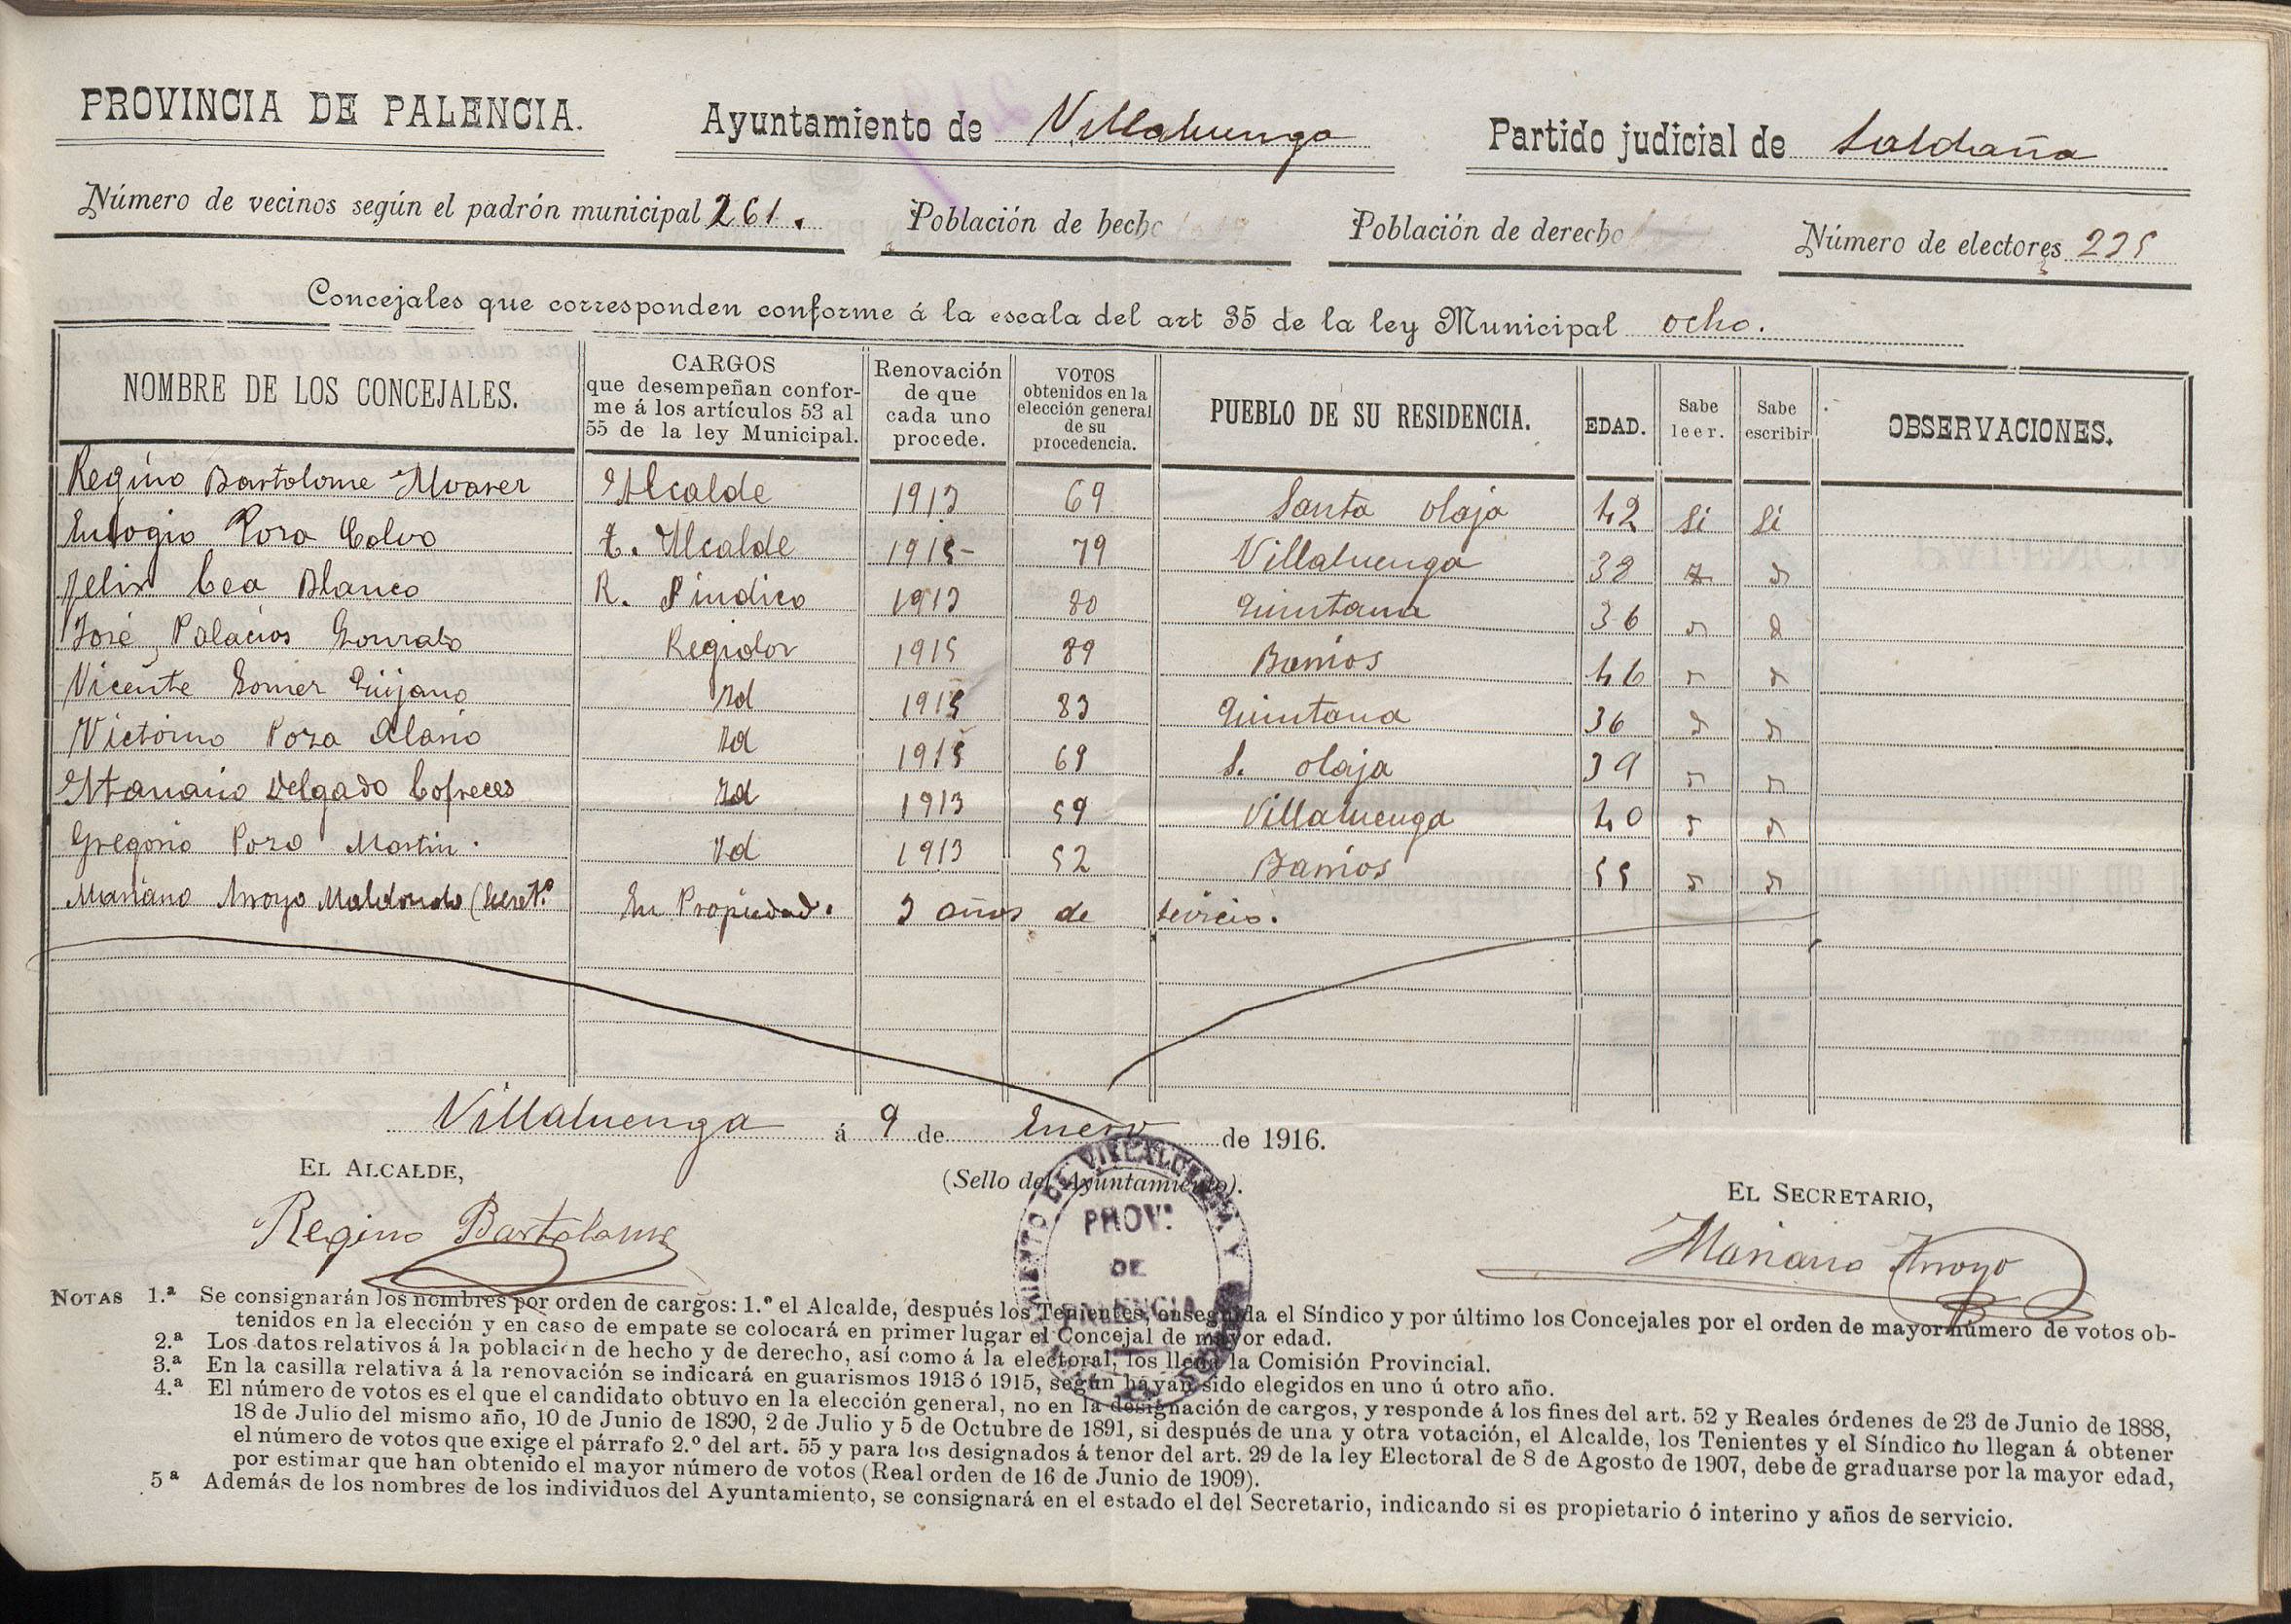 PROVINCIA DE PALENCIA. Ayuntamiento de Villaluenga Partido judicial de Saldaña
Número de vecinos según el padrón municipal 261. Población de hecho Población de derecho Número de electores 225
Concejales que corresponden conforme á la escala del art 35 de la ley Municipal ocho.
NOMBRE DE LOS CONCEJALES. CARGOS que desempeñan confor- me á los artículos 53 al 55 de la ley Municipal. Renovación de que cada uno procede. VOTOS obtenidos en la elección general de su procedencia. PUEBLO DE SU RESIDENCIA. EDAD. Sabe leer. Sabe escribir OBSERVACIONES.
Regino Bartolome Alvarez Alcalde 1913 69 Santa Olaja 42 Si Si
Eulogio Poza Calvo T. Alcalde 1915 79 Villaluenga 38
Felix Cea Blanco R. Sindico 1913 80 Quintana 36
José Palacios Gonzalo Regidor 1915 89 Barrios 46
Vicente Gomez Quijano Id 1915 83 Quintana 36
Victorino Poza Id 1915 69 S. Olaja 39
Atanasio Delgado Cofreces Id 1913 59 Villaluenga 40
Gregorio Pozo Martin. Id 1913 52 Barrios 55
Mariano Arroyo Maldonado (Secret.º En Propiedad. 3 años de servicio.
Villaluenga á 9 de Enero de 1916.
EL ALCALDE, (Sello del Ayuntamiento). EL SECRETARIO,
Regino Bartolome Mariano Arroyo
PROV.
DE
NOTAS 1.ª Se consignarán los nombres por orden de cargos: 1.º el Alcalde, después los Tenientes, enseguida el Síndico y por último los Concejales por el orden de mayor número de votos ob-
tenidos en la elección y en caso de empate se colocará en primer lugar el Concejal de mayor edad.
2.ª Los datos relativos á la población de hecho y de derecho, así como á la electoral, los llena la Comisión Provincial.
3.ª En la casilla relativa á la renovación se indicará en guarismos 1913 ó 1915, según hayan sido elegidos en uno ú otro año.
4.ª El número de votos es el que el candidato obtuvo en la elección general, no en la designación de cargos, y responde á los fines del art. 52 y Reales órdenes de 23 de Junio de 1888,
18 de Julio del mismo año, 10 de Junio de 1890, 2 de Julio y 5 de Octubre de 1891, si después de una y otra votación, el Alcalde, los Tenientes y el Síndico no llegan á obtener
el número de votos que exige el párrafo 2.º del art. 55 y para los designados á tenor del art. 29 de la ley Electoral de 8 de Agosto de 1907, debe de graduarse por la mayor edad,
por estimar que han obtenido el mayor número de votos (Real orden de 16 de Junio de 1909).
5ª Además de los nombres de los individuos del Ayuntamiento, se consignará en el estado el del Secretario, indicando si es propietario ó interino y años de servicio.